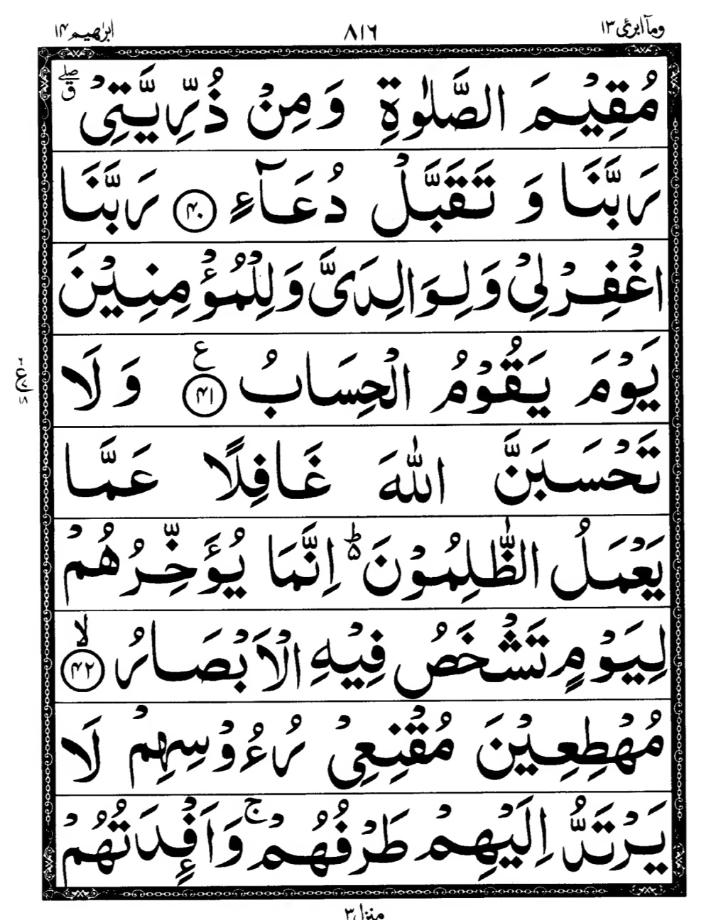 ابرٰهيم ١٤ ٨١٦ وما ابرئ ١٣
مُقِيْمَ الصَّلٰوةِ وَمِنْ ذُرِّيَّتِيْ ۖق
رَبَّنَا وَ تَقَبَّلْ دُعَآءِ ﴿۴۰﴾ رَبَّنَا
اغْفِرْ لِيْ وَلِوَالِدَيَّ وَلِلْمُؤْمِنِيْنَ
يَوْمَ يَقُوْمُ الْحِسَابُ ﴿۴۱﴾ ع وَ لَا
تَحْسَبَنَّ اللّٰهَ غَافِلًا عَمَّا
يَعْمَلُ الظّٰلِمُوْنَ ؕ اِنَّمَا يُؤَخِّرُهُمْ
لِيَوْمٍ تَشْخَصُ فِيْهِ الْاَبْصَارُ ﴿۴۲﴾ ۙ
مُهْطِعِيْنَ مُقْنِعِيْ رُءُوْسِهِمْ لَا
يَرْتَدُّ اِلَيْهِمْ طَرْفُهُمْ ۚ وَاَفْـِٕدَتُهُمْ
منزل ٣